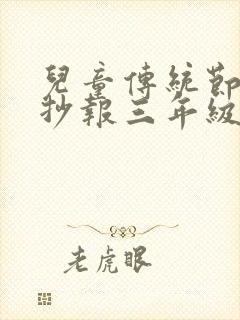 兒童傳統節
抄報三年級
老虎眼